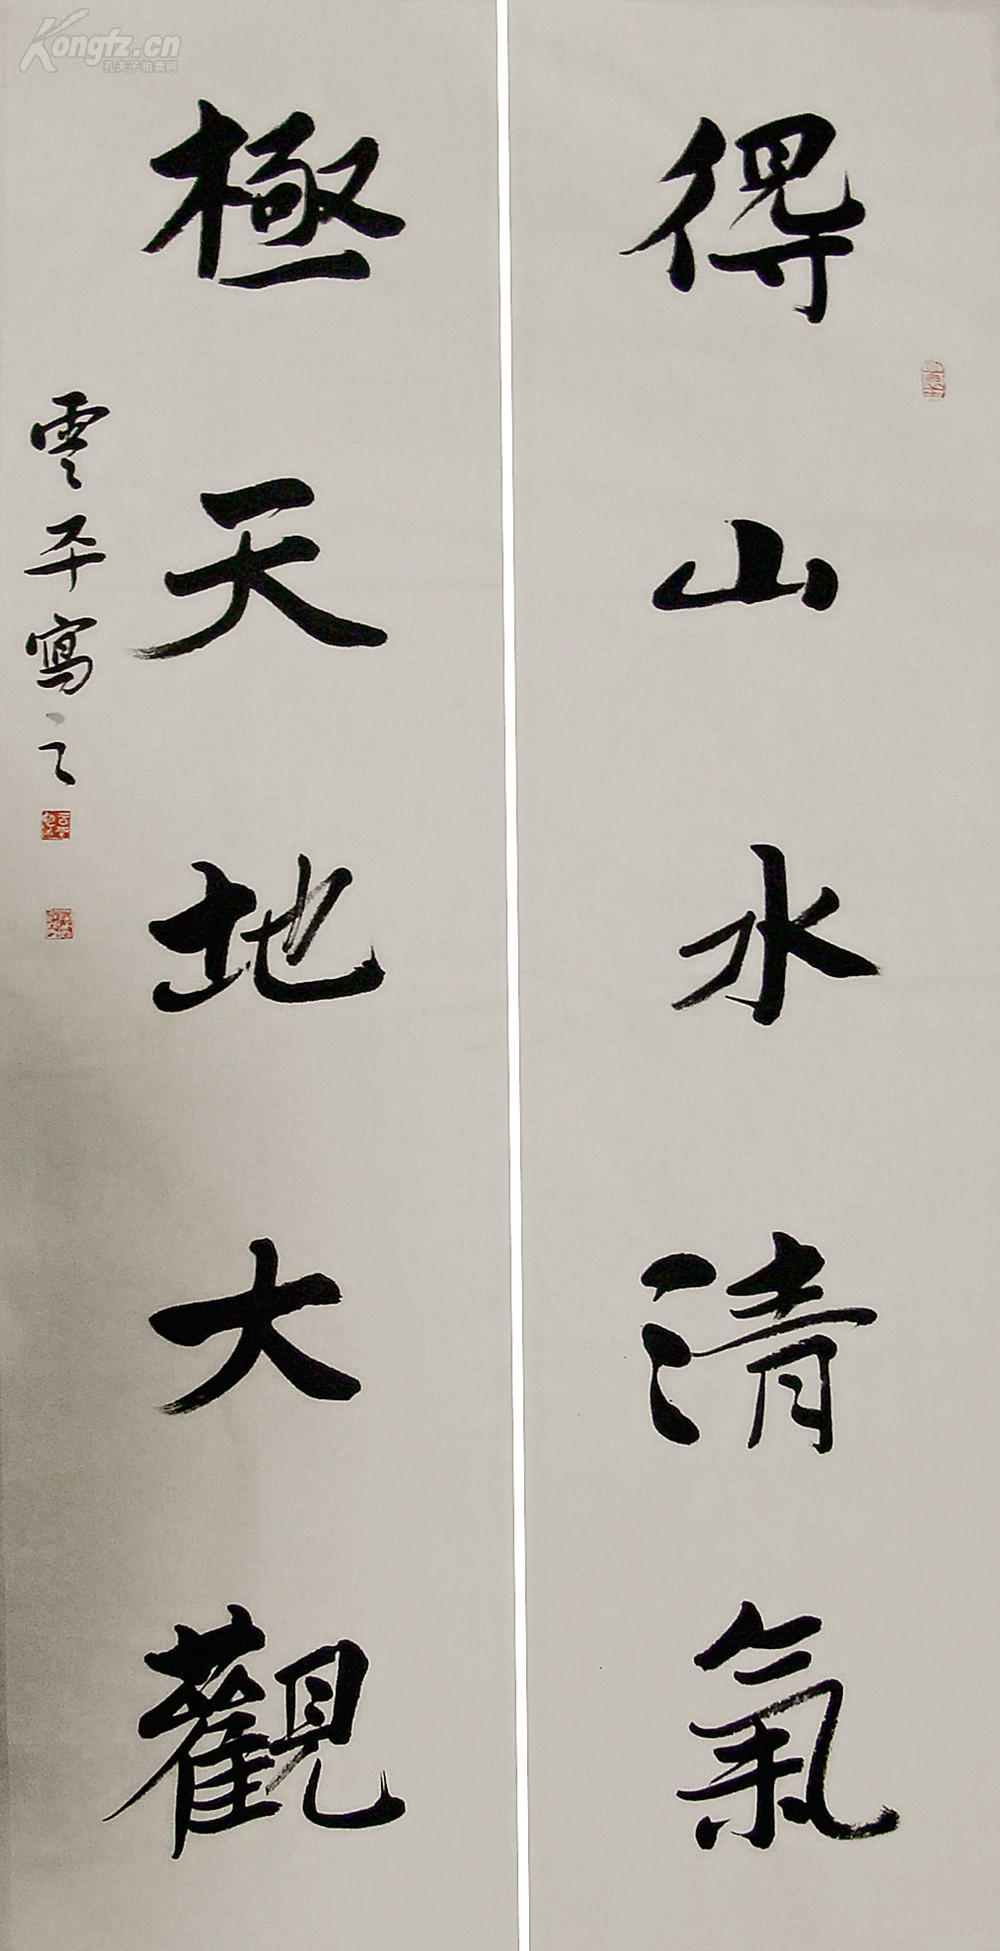 得山水清氣
極天地大觀
雲平寫之
Kongfz.cn
孔夫子拍卖网